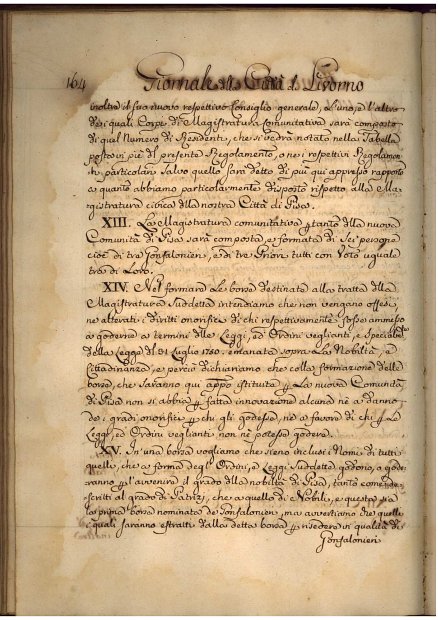 164 Giornale della Città di Livorno
inoltre il suo nuovo respettivo Consiglio generale, e l'uno, e l'altro
de quali Corpi di Magistratura Comunitativa sarà composto
di quel Numero di Residenti, che si vedrà notato nella Tabella
posta in piè del presente Regolamento, o nei respettivi Regolamen
ti particolari salvo quello sarà detto di più qui appresso rapporto
a quanto abbiamo particolarmente disposto rispetto alla Ma,
gistratura civica della nostra Città di Pisa.
XIII. La Magistratura comunitativa ptanto della nuova
Comunità di Pisa sarà composta, e formata di Sei persone
cioè di tre Gonfalonieri, e di tre Priori tutti con Voto uguale
tra di Loro.
XIV. Nel formare Le borse destinate alla tratta della
Magistratura Suddetta intendiamo che non vengano offesi,
ne alterati i diritti onorifici di chi respettivamente fosse ammesso
a goderne a termini delle Leggi, ed Ordini veglianti, e Specialmte
della Legge del 31 Luglio 1750. emanata sopra La Nobiltà, e
Cittadinanza, e perciò dichiariamo che colla formazione delle
borse, che saranno qui appo istituite p La nuova Comunità
di Pisa non si abbia p fatta innovazione alcuna nè a danno
de i gradi onorifici p chi gli godesse, nè a favore di chi p Le
Leggi, ed Ordini veglianti non nè potesse godere.
XV. In una borsa vogliamo che sieno inclusi i Nomi di tutti
quelli, che a forma degli Ordini, e Leggi Suddette godono, o gode,
ranno p l'avvenire il grado della nobiltà di Pisa, tanto come
scritti al grado di Patrizj, che a quello di Nobili, e questa sia
la prima borsa nominata de Gonfalonieri, ma avvertiamo che quelli
i quali saranno estratti dalla detta borsa p risedere in qualità di
Gonfalonieri